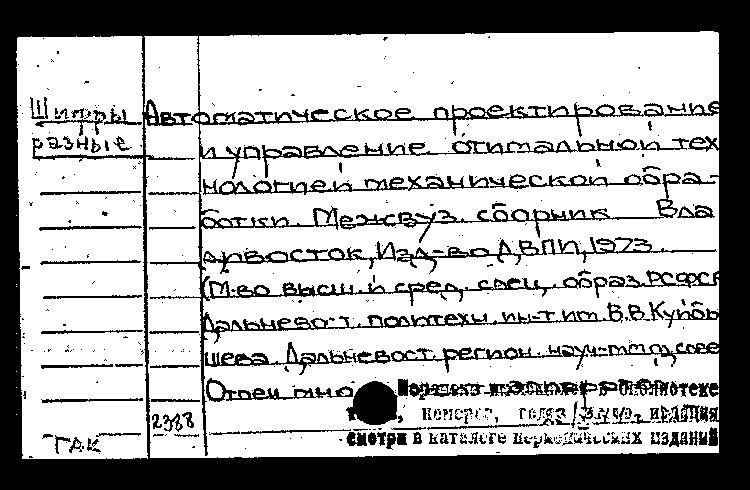 Шифры Автоматическое проектирование
разные и управление оптимальной тех
нологией механической обра-
ботки. Межвуз. сборник Вла
дивосток, Изд-во ДВПИ, 1973.
(М-во высш. и сред. спец. образ. РСФСР
Дальневост. политехн. ин-т им. В.В. Куйбы
шева. Дальневост. регион. науч.
Отдел
в библиотеке
2388 номеров, годах издания
ГАК смотри в каталоге периодических изданий